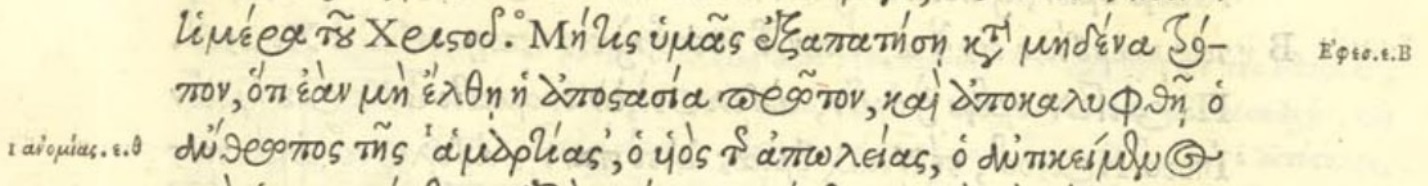 ἡμέρα τοῦ Χριστοῦ. Μήτις ὑμᾶς ἐξαπατήσῃ κατὰ μηδένα τρό- Ἐφεσ.ε.Β
πον, ὅτι ἐὰν μὴ ἔλθῃ ἡ ἀποστασία πρῶτον, καὶ ἀποκαλυφθῇ ὁ
ι ἀνομίας.ε.θ ἄνθρωπος τῆς ἁμαρτίας, ὁ υἱὸς τῆς ἀπωλείας, ὁ ἀντικείμενος